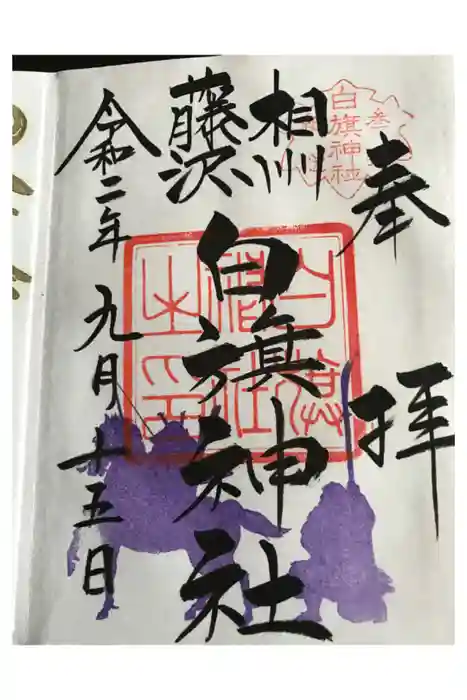 奉拝
白旗神社
相州
藤沢
白旗神社
白旗
神社
之印
令和二年九月十五日